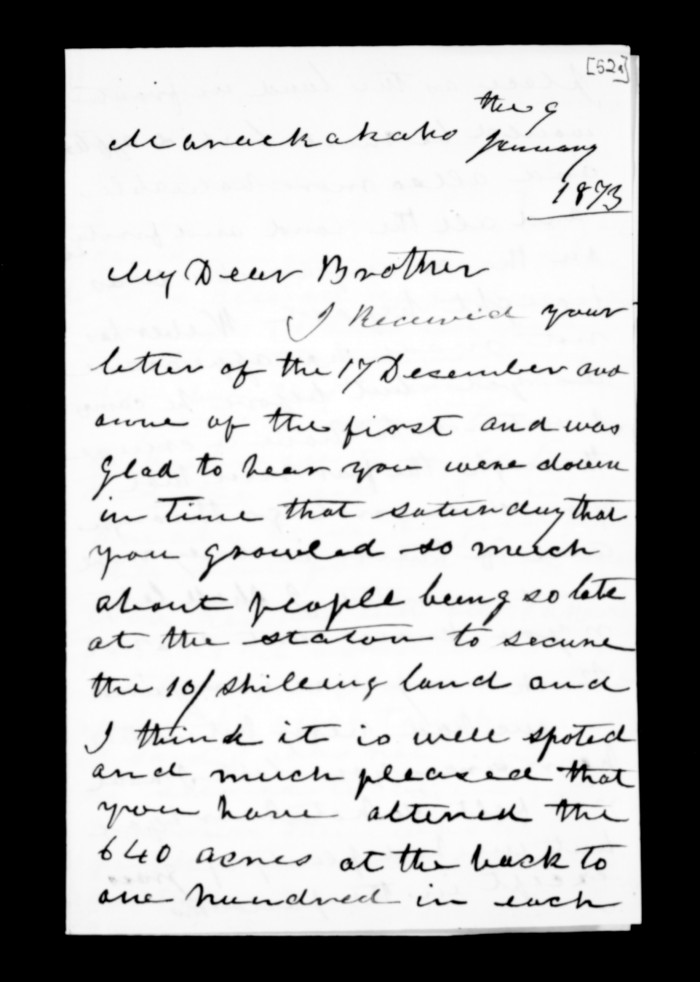 [52a]
the 9
Maraekakaho January
1873
My Dear Brother
I Received your
letter of the 17 Desember and
anne of the first and was
glad to hear you were down
in time that saturday that
you growled so much
about people being so late
at the staton to secure
the 10/ shilling land and
I think it is well spoted
and much pleased that
you have altered the
640 acres at the back to
one hundred in each